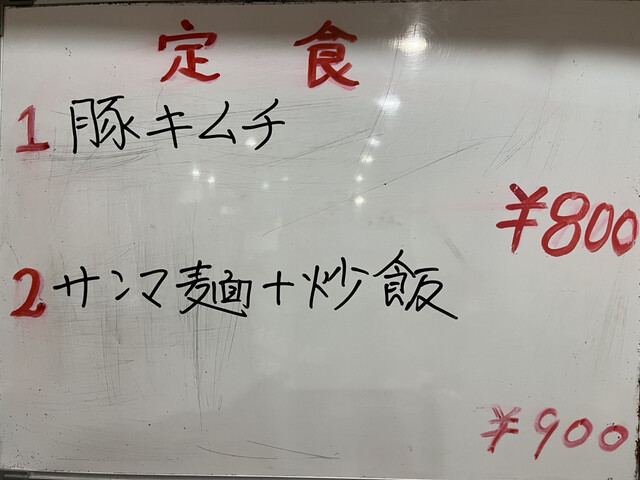 定食
1 豚キムチ
¥800
2 サンマ麺+炒飯
¥900